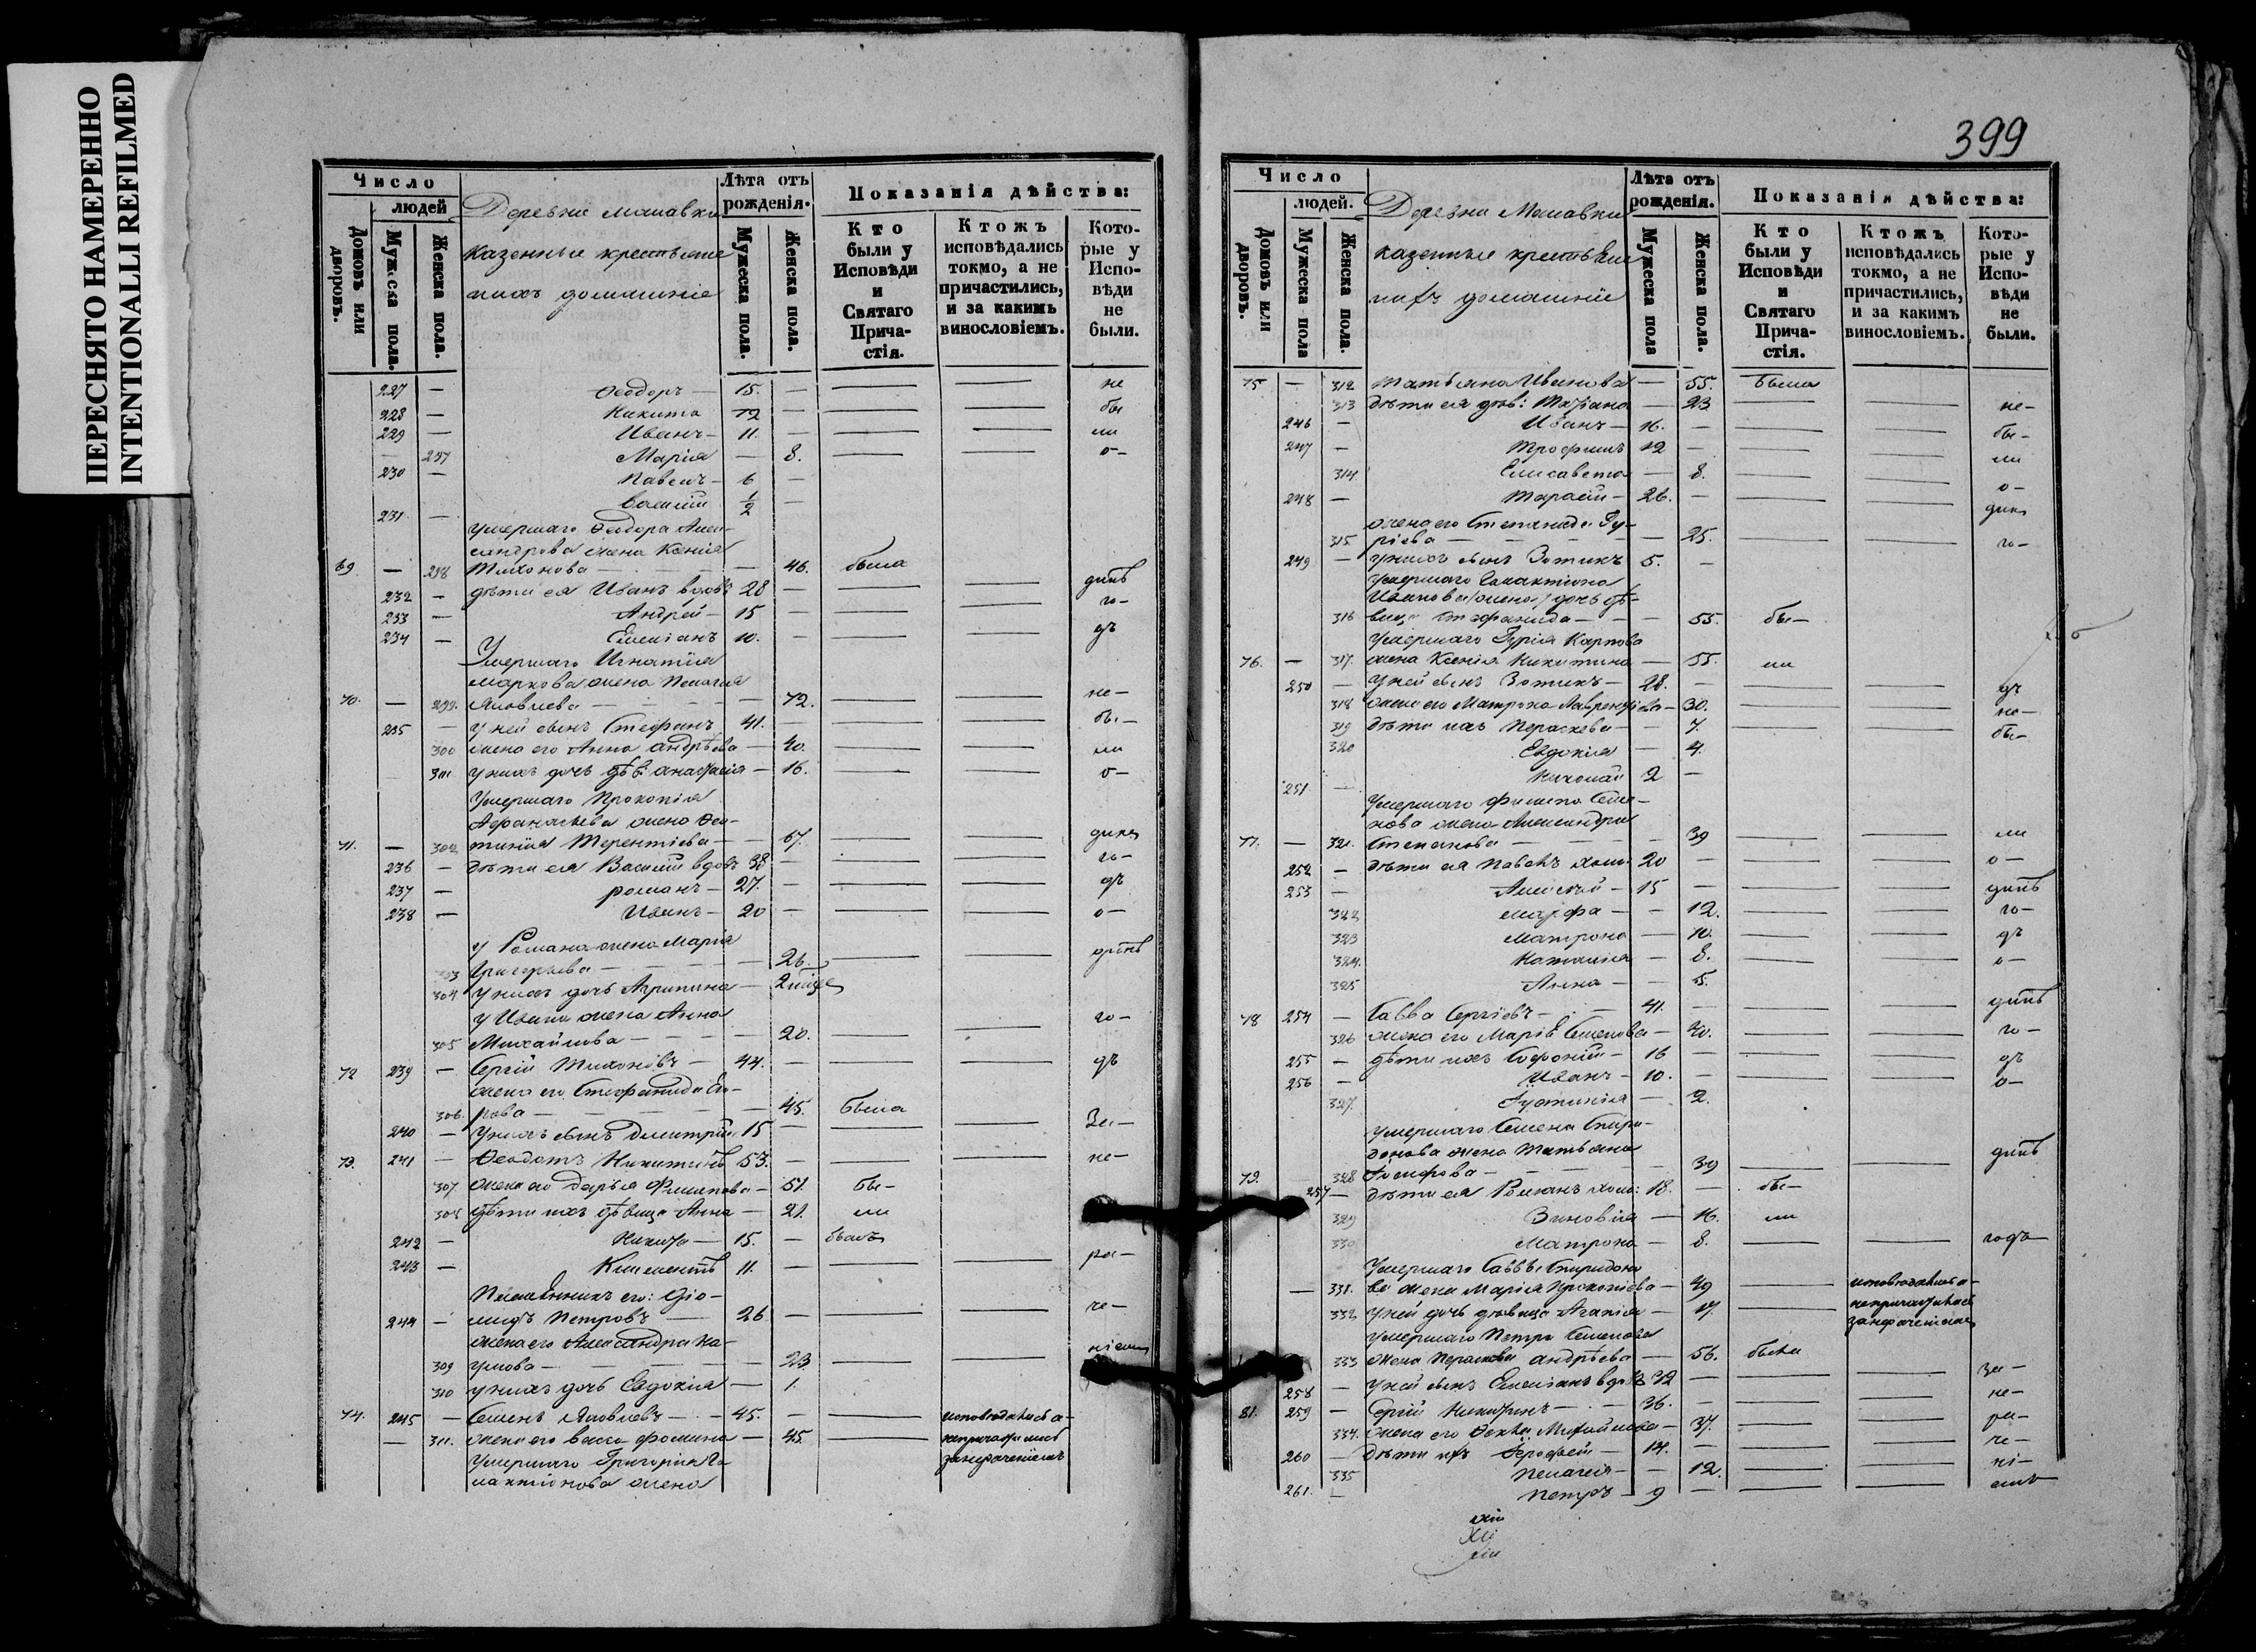 ПЕРЕСНЯТО НАМЕРЕННО
INTENTIONALLI REFILMED
Число
людей
Домовъ или дворовъ.
Мужска пола.
Женска пола.
Деревни
казенные крестьяне
нихъ домашніе
Лѣта отъ рожденія.
Мужеска пола.
Женска пола.
Показанія дѣйства:
Кто были у Исповѣди и Святаго Прича-стія.
Ктожъ исповѣдались токмо, а не причастились, и за какимъ винословіемъ.
Кото-рые у Испо-вѣди не были.
227 — Ѳеодоръ — 15. — не
228 — Никита 12 — бы
229 — Иванъ — 11. — ли
— 297 Марія — 8. о-
230 — Павелъ — 6 —
231 — Василій 1/2 —
умершаго Ѳеодора Алек-
сандрова жена Ксенія
69 — 298 Тихонова — 46. была
232 — дѣти ея Иванъ вдовъ 28 — динъ
233 — Андрей — 15 — го-
234 — Емеліанъ 10. — дъ
Умершаго Игнатія
Маркова жена Пелагія
70. — 299. Яковлева — 72. не-
235 — у ней сынъ Стефанъ 41. — бы-
300 жена его Анна Андрѣева — 40. ли
301 у нихъ дочь дѣв. Анастасія — 16. о-
Умершаго Прокопія
Афанасьева жена Ѳек-
71. — 302 Терентіева — 67.
236 — дѣти ея Василій вдовъ 38 — го-
237 — Романъ — 27. — дъ
238 — Иванъ — 20 — о-
У Романа жена Марія
303 Григорьева — 26. динъ
304 у нихъ дочь Агрипина —
у Ивана жена Анна
305 Михайлова — 20. го-
72 239 — Сергій Тихоновъ — 44. — дъ
жена его Стефанида
306. — 45. была
240 — у нихъ сынъ Димитрій 15 — За-
73. 241 — Ѳеодотъ Никитинъ 53. — не-
307. жена его Дарья Филипова — 51. бы-
308 дѣти ихъ дѣвица Анна — 21. ли
242 — Никита — 15. — былъ
243 — Климентъ 11. — ра-
Племянникъ его:
244 — Петровъ — 26 — че-
жена его Александра На-
309 умова — 23 ніемъ
310 у нихъ дочь Евдокія — 1.
74. 245 — Семенъ Яковлевъ — 45. — исповѣдались а-
— 311. жена его Васса Фомина — 45. непричастились
Умершаго Григорія Га- занераченіемъ
лактіонова жена
399
Число
людей.
Домовъ или дворовъ.
Мужска пола
Женска пола.
Деревни
казенные крестьяне
ихъ домашніе
Лѣта отъ рожденія.
Мужеска пола
Женска пола.
Показанія дѣйства:
Кто были у Исповѣди и Святаго Прича-стія.
Ктожъ исповѣдались токмо, а не причастились, и за какимъ винословіемъ.
Кото-рые у Испо-вѣди не были.
75 — 312 Татьяна Иванова — 55. была
313 дѣти ея дѣв: — 23 не-
246 — Иванъ — 16. — бы-
247 — Трофимъ 12 — ли
314 Елисавета — 8. о-
248 — Тарасій — 26. —
жена его Степанида Гу-
315 ріева — 25. го-
249 — у нихъ сынъ Зотикъ 5. —
Умершаго Галактіона
Иванова жена дочь дѣ-
316 вица Стефанида — 55. бы-
Умершаго Гурія Карпова
76. — 317. жена Ксенія Никитина — 55. ли
250 — у ней сынъ Зотикъ — 28. — дъ
318 жена его Матрона Лаврентіева — 30. не-
319 дѣти ихъ Параскева — 7. бы-
320 Евдокія — 4.
251 — Николай 2 —
Умершаго Филипа Семе-
нова жена Александра
77. — 321. Степанова — 39 ли
252 — дѣти ея Павелъ холос. 20 — о-
253 — Алексѣй — 15 — динъ
322 Марфа — 12. го-
323 Матрона — 10. дъ
324. Наталія — 8. о-
325 Анна — 5.
78 254 — Савва Сергіевъ — 41. — динъ
326 жена его Марія Семенова — 40. го-
255 — дѣти ихъ Софоній — 16 — дъ
256 — Иванъ — 10. — о-
327. Іустинія — 2.
Умершаго Семена Спири-
донова жена Татьяна
79. 328 Іосифова — 39 динъ
257 — дѣти ея Романъ холос: 18. — бы-
329 Зиновія — 16. ли
330 Матрона — 8. годъ
Умершаго Саввы Спиридоно-
— 331. ва жена Марія Прокопіева — 49 исповѣдались а-
332 у ней дочь дѣвица Агапія — 17. непричастились
занераченіемъ
Умершаго Петра Семенова
333 жена Параскева Андрѣева — 56. была
258 — у ней сынъ Емеліанъ вдовъ 32 — За-
81. 259 — Сергій Никитинъ — 36. — не-
334. жена его Ѳекла Михайлова — 37. ра-
260 — дѣти ихъ Іероѳей — 14. — че-
335 Пелагея — 12. ні-
261. — Петръ — 9 — емъ